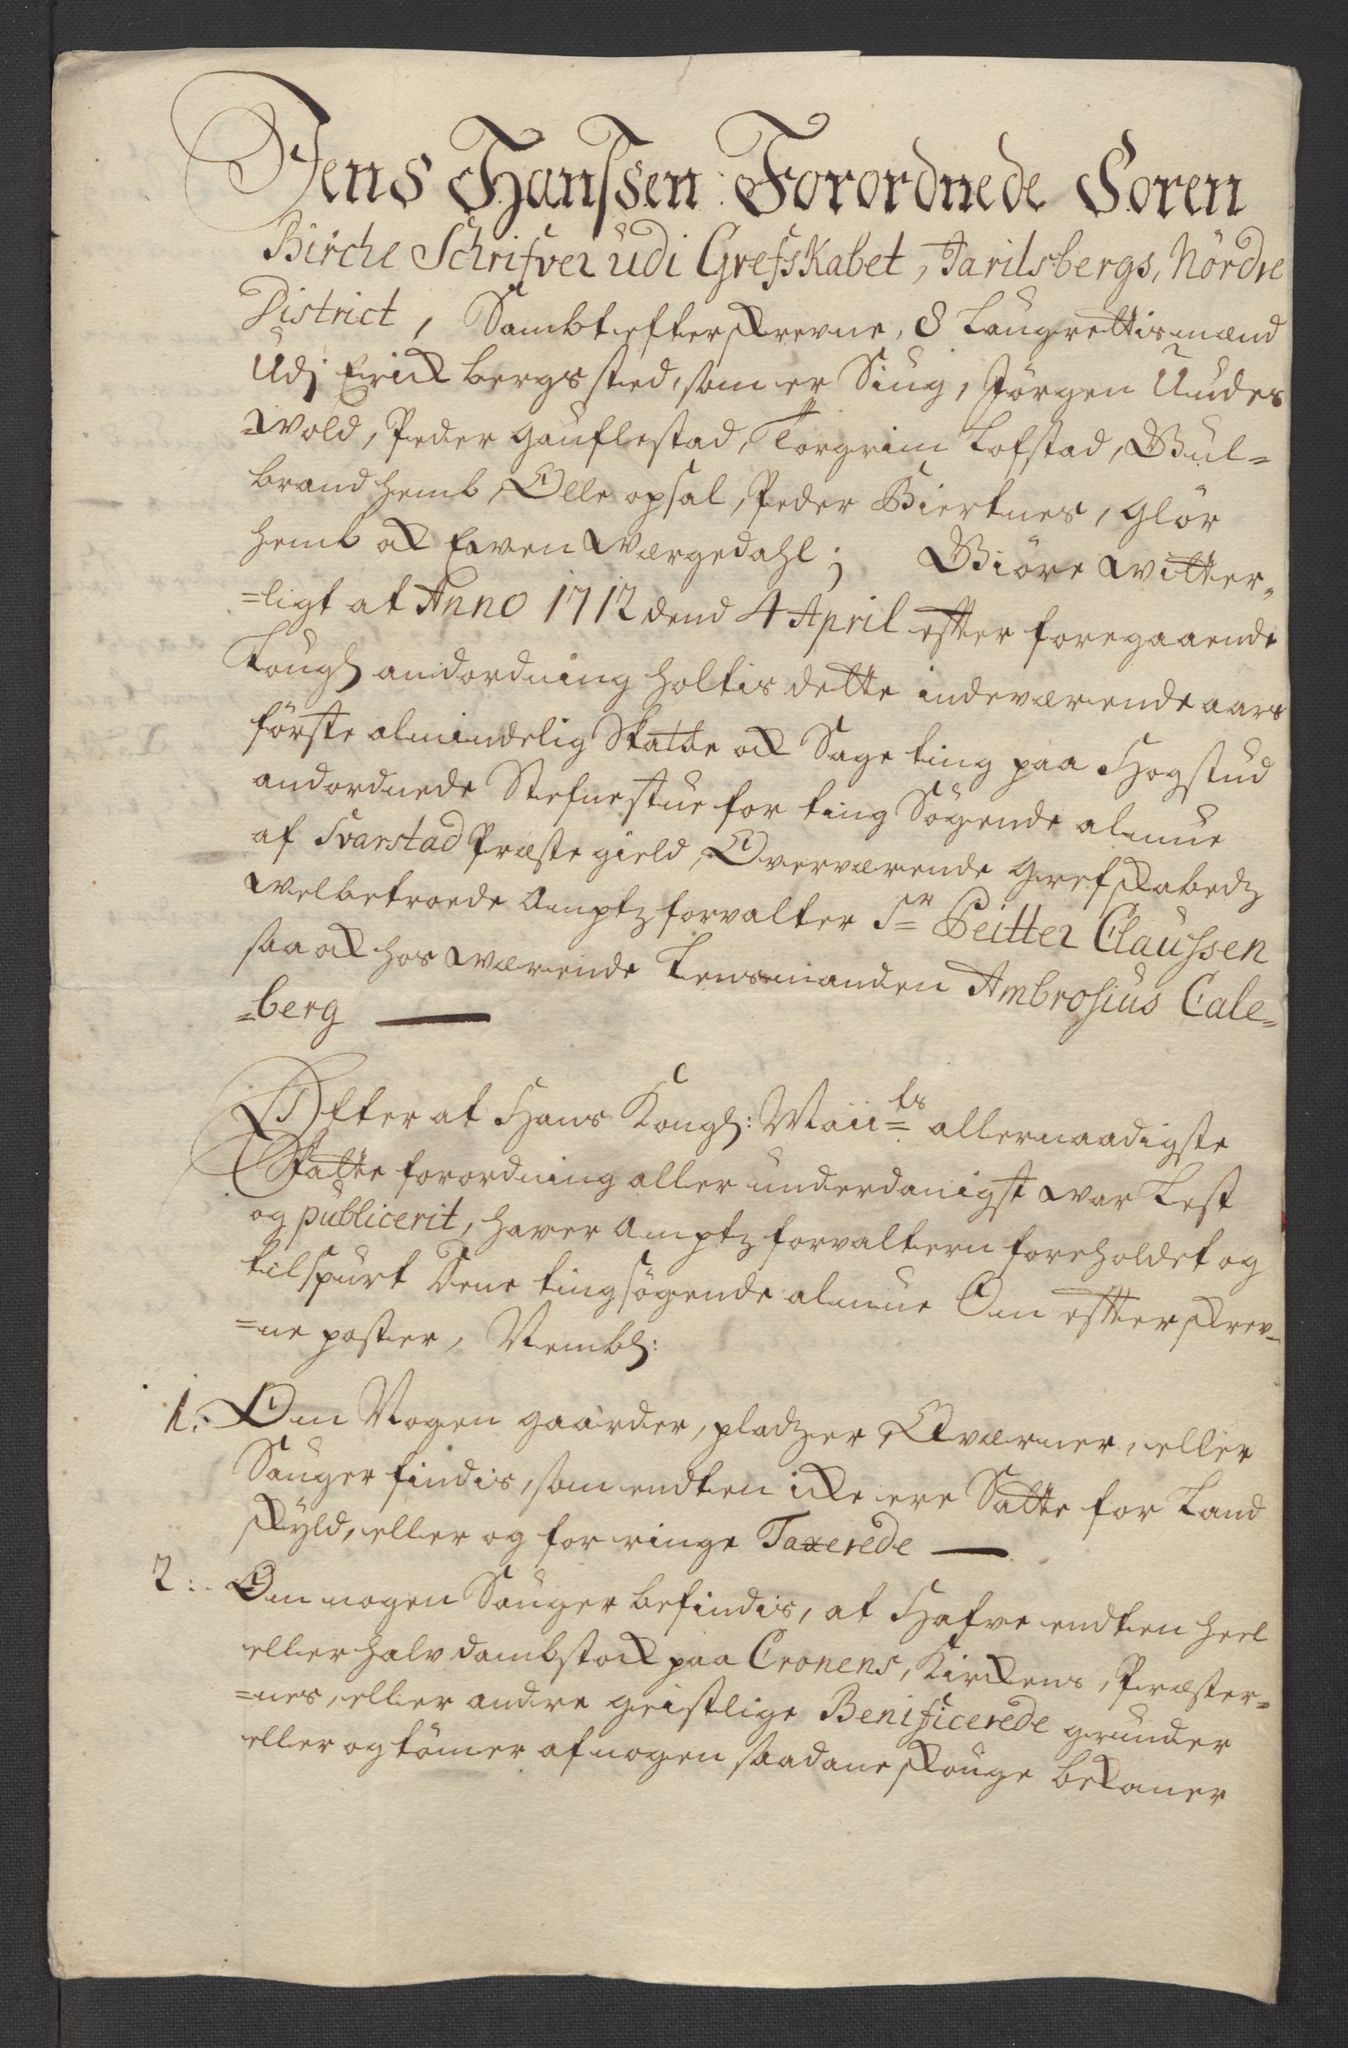 Jens Hanssen Forordnede Soren
Birche Schrifver udi Grefskabet, Jarilsbergs, Nördre
District, Sambt efterskrevne, 8 Laugrettismænd
Udj Erick bergs sted, som er Siug, Jörgen Uudes
wold, Peder gauflestad, Torgrim Lofstad, Gul=
brand hemb, Olle opsal, Peder Biertnes, glör
hemb og Even Wærgedahl; Giöre witter=
=ligt at Anno 1712 dend 4 April efter foregaaende
Lougl andordning holtis dette indeværende aars
förste almindelig Skatte og Sage ting paa Hogstad
andordnede Stefnestue for ting Sögende almue
af Svarstad Præstegield, Overværende grefskabedz
welbetroede Amptzforvalter Sr Peitter Claussen
saa og hos wærende Lensmanden Ambrosius Cale=
=berg
Efter at Hans Kongl: Maiits allernaadigste
Skatte forordning aller underdanigst war Lest
og publicerit, haver Amptzforvaltern foreholdet og
tilspurt Dene tingsögende almue Om efterskrev=
=ne poster, Nembl:
1. Om Nogen gaarder, pladzer, Qværner, eller
Sauger findis, som endten icke ere Satte for Land
skyld, eller og for ringe Taxerede
2. Om nogen Sauger befindis, at Hafve endten heel
eller halv dambstock paa Cronens, Kirckens, Præster=
=nes, eller andre geistlige Benificerede grunder
eller og tömer af nogen saadane skouge bekaner